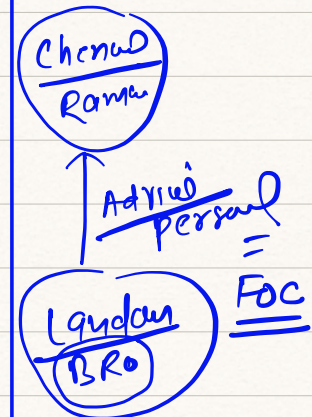 Chennai
Rama
Advice
personal
FOC
London
BRO